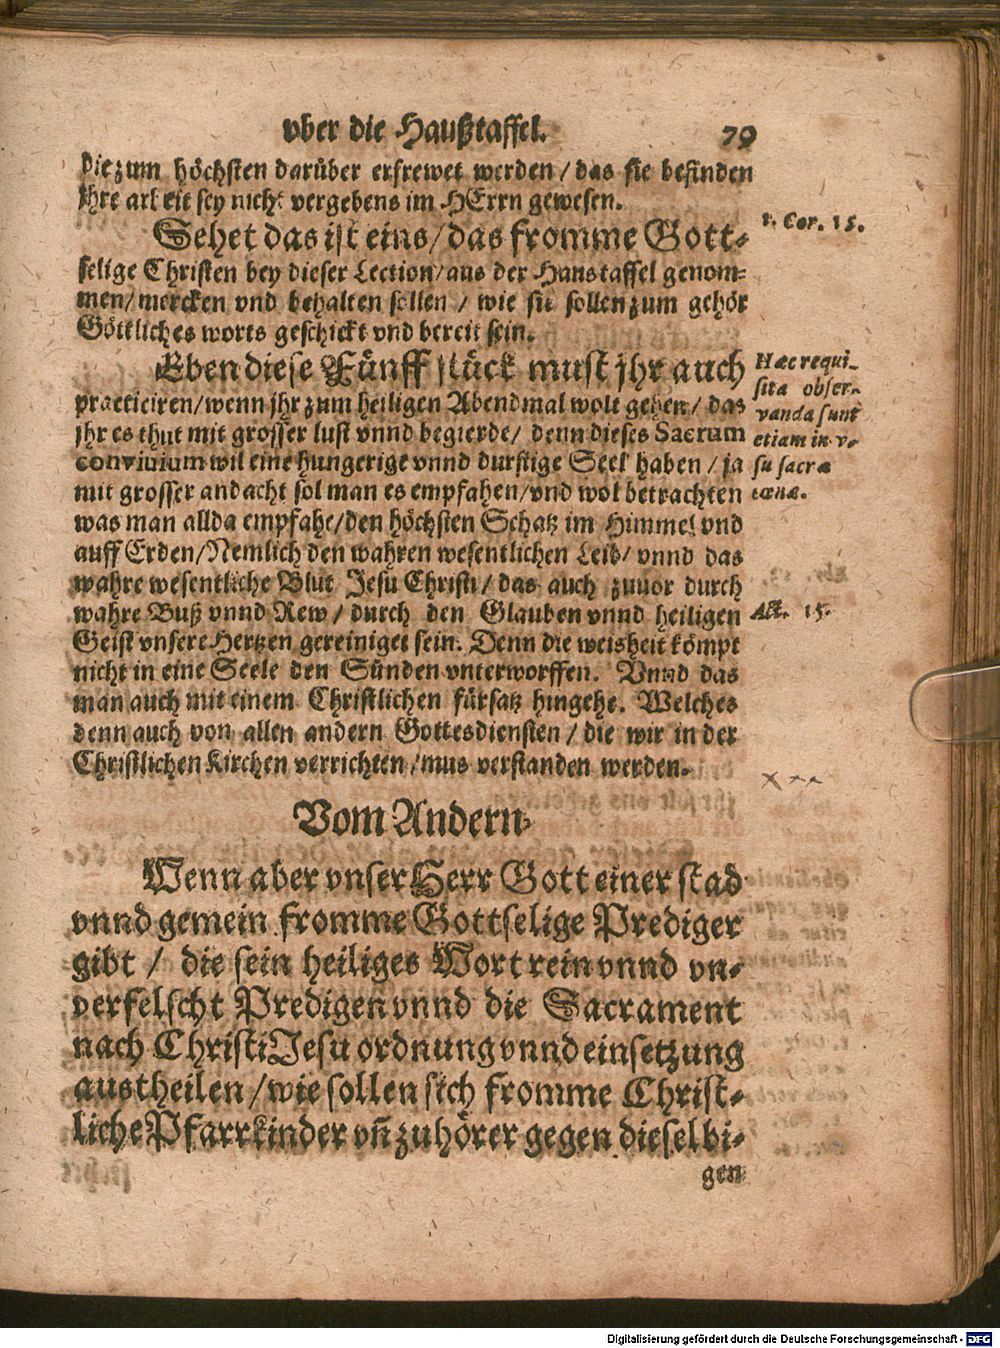 vber die Haußtaffel. 79
die zum höchsten darüber erfrewet werden / das sie befinden
jhre arbeit sey nicht vergebens im HErrn gewesen.
1. Cor. 15.
Sehet das ist eins / das fromme Gott-
selige Christen bey dieser Lection / aus der Haustaffel genom-
men / mercken vnd behalten sollen / wie sie sollen zum gehör
Göttliches worts geschickt vnd bereit sein.
Eben diese Fünff stück must jhr auch
practiciren / wenn jhr zum heiligen Abendmal wolt gehen / das
jhr es thut mit grosser lust vnnd begierde / denn dieses Sacrum
convivium wil eine hungerige vnnd durstige Seel haben / ja
mit grosser andacht sol man es empfahen / vnd wol betrachten
was man allda empfahe / den höchsten Schatz im Himmel vnd
auff Erden / Nemlich den wahren wesentlichen Leib / vnnd das
wahre wesentliche Blut Jesu Christi / das auch zuuor durch
wahre Buß vnnd Rew / durch den Glauben vnnd heiligen
Geist vnsere Hertzen gereiniget sein. Denn die weisheit kömpt
nicht in eine Seele den Sünden vnterworffen. Vnnd das
man auch mit einem Christlichen fürsatz hingehe. Welches
denn auch von allen andern Gottesdiensten / die wir in der
Christlichen Kirchen verrichten / mus verstanden werden.
Hæc requi-
sita obser-
vanda sunt
etiam in v-
su sacræ
cœnæ.
Act. 15.
Vom Andern.
Wenn aber vnser Herr Gott einer stad
vnnd gemein fromme Gottselige Prediger
gibt / die sein heiliges Wort rein vnnd vn-
verfelscht Predigen vnnd die Sacrament
nach Christi Jesu ordnung vnnd einsetzung
austheilen / wie sollen sich fromme Christ-
liche Pfarrkinder vñ zuhörer gegen dieselbi-
gen
Digitalisierung gefördert durch die Deutsche Forschungsgemeinschaft - DFG